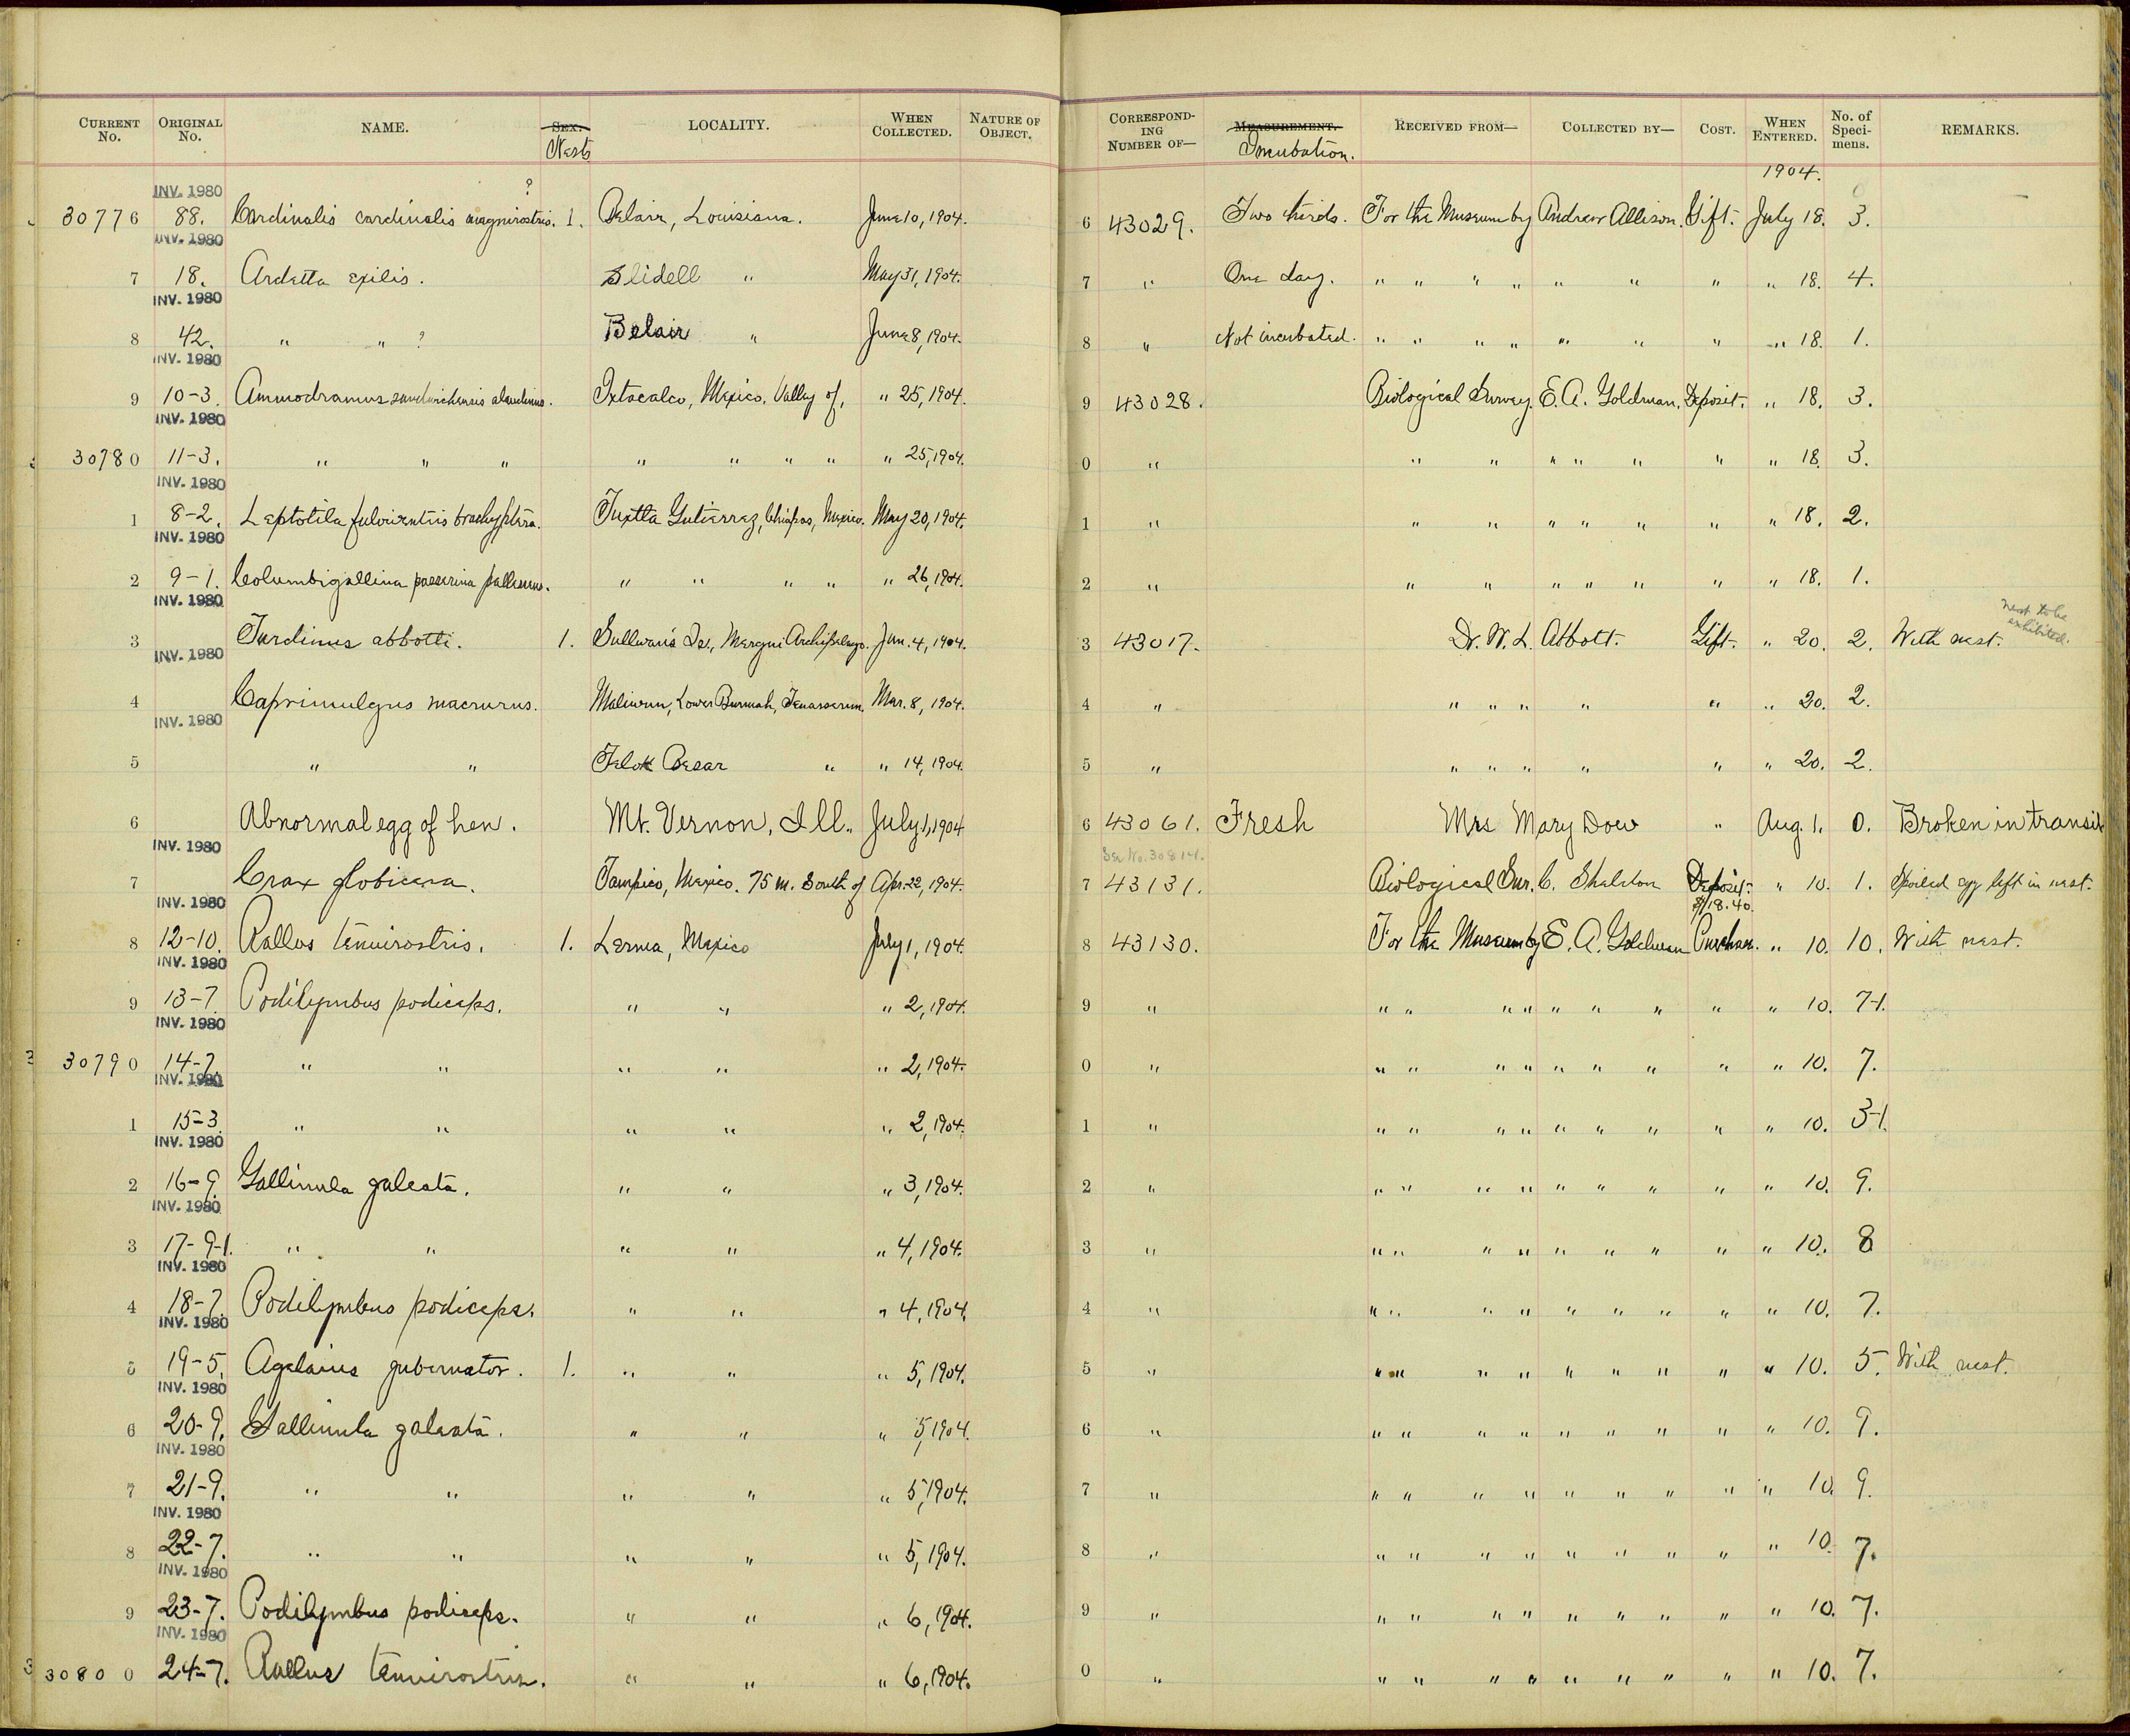 CURRENT No. ORIGINAL No. NAME. SEX. Nests LOCALITY. WHEN COLLECTED. NATURE OF OBJECT. CORRESPONDING NUMBER OF— MEASUREMENT. Incubation. RECEIVED FROM— COLLECTED BY— COST. WHEN ENTERED. No. of Specimens. REMARKS.
INV. 1980 ? 1904.
30776 88. Cardinalis cardinalis magnirostris. 1. Belair, Louisiana. June 10, 1904. 6 43029. Two thirds. For the Museum by Andrew Allison. Gift. July 18. 3.
INV. 1980
7 18. Ardetta exilis. Slidell " May 31, 1904. 7 " One day. " " " " " " " " 18. 4.
INV. 1980
8 42. " " ? Belair " June 8, 1904. 8 " Not incubated. " " " " " " " " 18. 1.
INV. 1980
9 10-3. Ammodramus sandwichensis alaudinus. Ixtacalco, Mexico, Valley of, " 25, 1904. 9 43028. Biological Survey. E. A. Goldman. Deposit. " 18. 3.
INV. 1980
30780 11-3. " " " " " " " " 25, 1904. 0 " " " " " " " " 18. 3.
INV. 1980
1 8-2. Leptotila fulviventris brachyptera. Tuxtla Gutierrez, Chiapas, Mexico. May 20, 1904. 1 " " " " " " " " 18. 2.
INV. 1980
2 9-1. Columbigallina passerina pallescens. " " " " " 26, 1904. 2 " " " " " " " " 18. 1.
INV. 1980 nest to be exhibited.
3 Turdinus abbotti. 1. Sullivan's Is., Mergui Archipelago. Jan. 4, 1904. 3 43017. Dr. W. L. Abbott. Gift. " 20. 2. With nest.
INV. 1980
4 Caprimulgus macrurus. Maliwun, Lower Burmah, Tenasserim. Mar. 8, 1904. 4 " " " " " " " 20. 2.
INV. 1980
5 " " Telok Besar " " 14, 1904. 5 " " " " " " " 20. 2.
6 Abnormal egg of hen. Mt. Vernon, Ill. July 1, 1904 6 43061. Fresh Mrs Mary Dow " Aug. 1. 0. Broken in transit
INV. 1980 See No. 30814.
7 Crax globicera. Tampico, Mexico. 75 m. South of Apr. 22, 1904. 7 43131. Biological Sur. C. Sheldon Deposit. " 10. 1. Spoiled egg left in nest.
INV. 1980 $18.40.
8 12-10. Rallus tenuirostris. 1. Lerma, Mexico July 1, 1904. 8 43130. For the Museum by E. A. Goldman Purchase. " 10. 10. With nest.
INV. 1980
9 13-7. Podilymbus podiceps. " " " 2, 1904. 9 " " " " " " " " " " 10. 7-1.
INV. 1980
30790 14-7. " " " " " 2, 1904. 0 " " " " " " " " " " 10. 7.
INV. 1980
1 15-3. " " " " " 2, 1904. 1 " " " " " " " " " " 10. 3-1.
INV. 1980
2 16-9. Gallinula galeata. " " " 3, 1904. 2 " " " " " " " " " " 10. 9.
INV. 1980
3 17-9-1. " " " " " 4, 1904. 3 " " " " " " " " " " 10. 8
INV. 1980
4 18-7. Podilymbus podiceps. " " " 4, 1904. 4 " " " " " " " " " " 10. 7.
INV. 1980
5 19-5. Agelaius gubernator. 1. " " " 5, 1904. 5 " " " " " " " " " " 10. 5. With nest.
INV. 1980
6 20-9. Gallinula galeata. " " " 5, 1904. 6 " " " " " " " " " " 10. 9.
INV. 1980
7 21-9. " " " " " 5, 1904. 7 " " " " " " " " " " 10. 9.
INV. 1980
8 22-7. " " " " " 5, 1904. 8 " " " " " " " " " " 10. 7.
INV. 1980
9 23-7. Podilymbus podiceps. " " " 6, 1904. 9 " " " " " " " " " " 10. 7.
INV. 1980
30800 24-7. Rallus tenuirostris. " " " 6, 1904. 0 " " " " " " " " " " 10. 7.